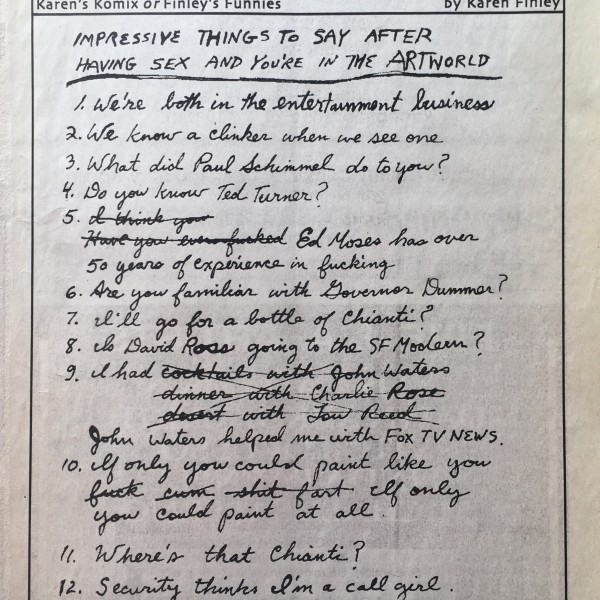 Karen's Komix or Finley's Funnies
by Karen Finley
IMPRESSIVE THINGS TO SAY AFTER
HAVING SEX AND YOU'RE IN THE ARTWORLD
1. We're both in the entertainment business
2. We know a clinker when we see one
3. What did Paul Schimmel do to you?
4. Do you know Ted Turner?
5. I think you
Have you ever fucked Ed Moses has over
50 years of experience in fucking
6. Are you familiar with Governor Dummer?
7. I'll go for a bottle of Chianti?
8. Is David Ross going to the SF Modern?
9. I had cocktails with John Waters
dinner with Charlie Rose
desert with Lou Reed
John Waters helped me with FOX TV NEWS.
10. If only you could paint like you
fuck cum shit fart If only
you could paint at all.
11. Where's that Chianti?
12. Security thinks I'm a call girl.